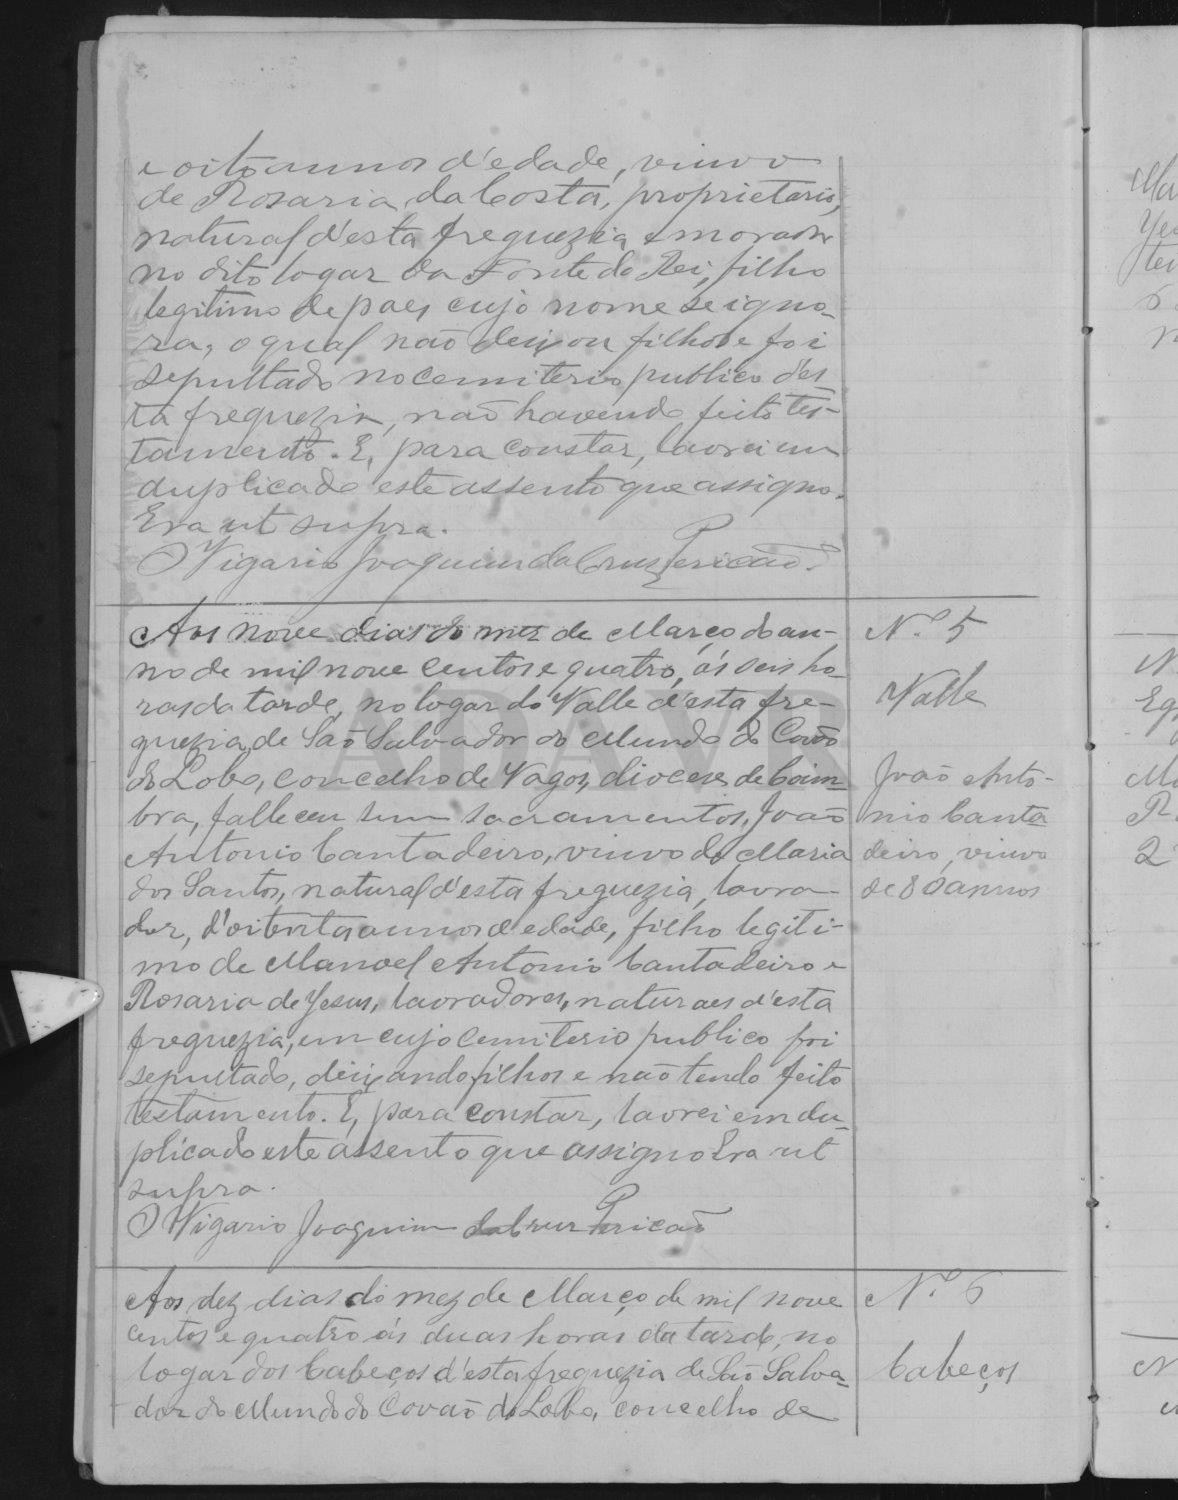 e oito annos d'edade, viuvo
de Rosaria da Costa, proprietario,
natural d'esta freguezia e morador
no dito logar da Fonte do Rei, filho
legitimo de paes cujo nome se igno-
ra, o qual não deixou filhos e foi
sepultado no cemiterio publico d'es-
ta freguezia, não havendo feito tes-
tamento. E, para constar, lavrei em
duplicado este assento que assigno.
Era ut supra.
O Vigario Joaquim da Cruz Pericão.
Aos nove dias do mez de Março do an-
no de mil nove centos e quatro, ás seis ho-
ras da tarde, no logar do Valle d'esta fre-
guezia de São Salvador do Mundo do Covão
do Lobo, concelho de Vagos, diocese de Coim-
bra, falleceu sem sacramentos, João
Antonio Cantadeiro, viuvo de Maria
dos Santos, natural d'esta freguezia, lavra-
dor, d'oitenta annos d'edade, filho legiti-
mo de Manoel Antonio Cantadeiro e
Rosaria de Jesus, lavradores, naturaes d'esta
freguezia, em cujo cemiterio publico foi
sepultado, deixando filhos e não tendo feito
testamento. E, para constar, lavrei em du-
plicado este assento que assigno Era ut
supra.
O Vigario Joaquim da Cruz Pericão
Nº 5
Valle
João Anto-
nio Canta
deiro, viuvo
de 80 annos
Aos dez dias do mez de Março de mil nove
centos e quatro ás duas horas da tarde, no
logar dos Cabeços d'esta freguezia de São Salva-
dor do Mundo do Covão do Lobo, concelho de
Nº 6
Cabeços
ADAVR